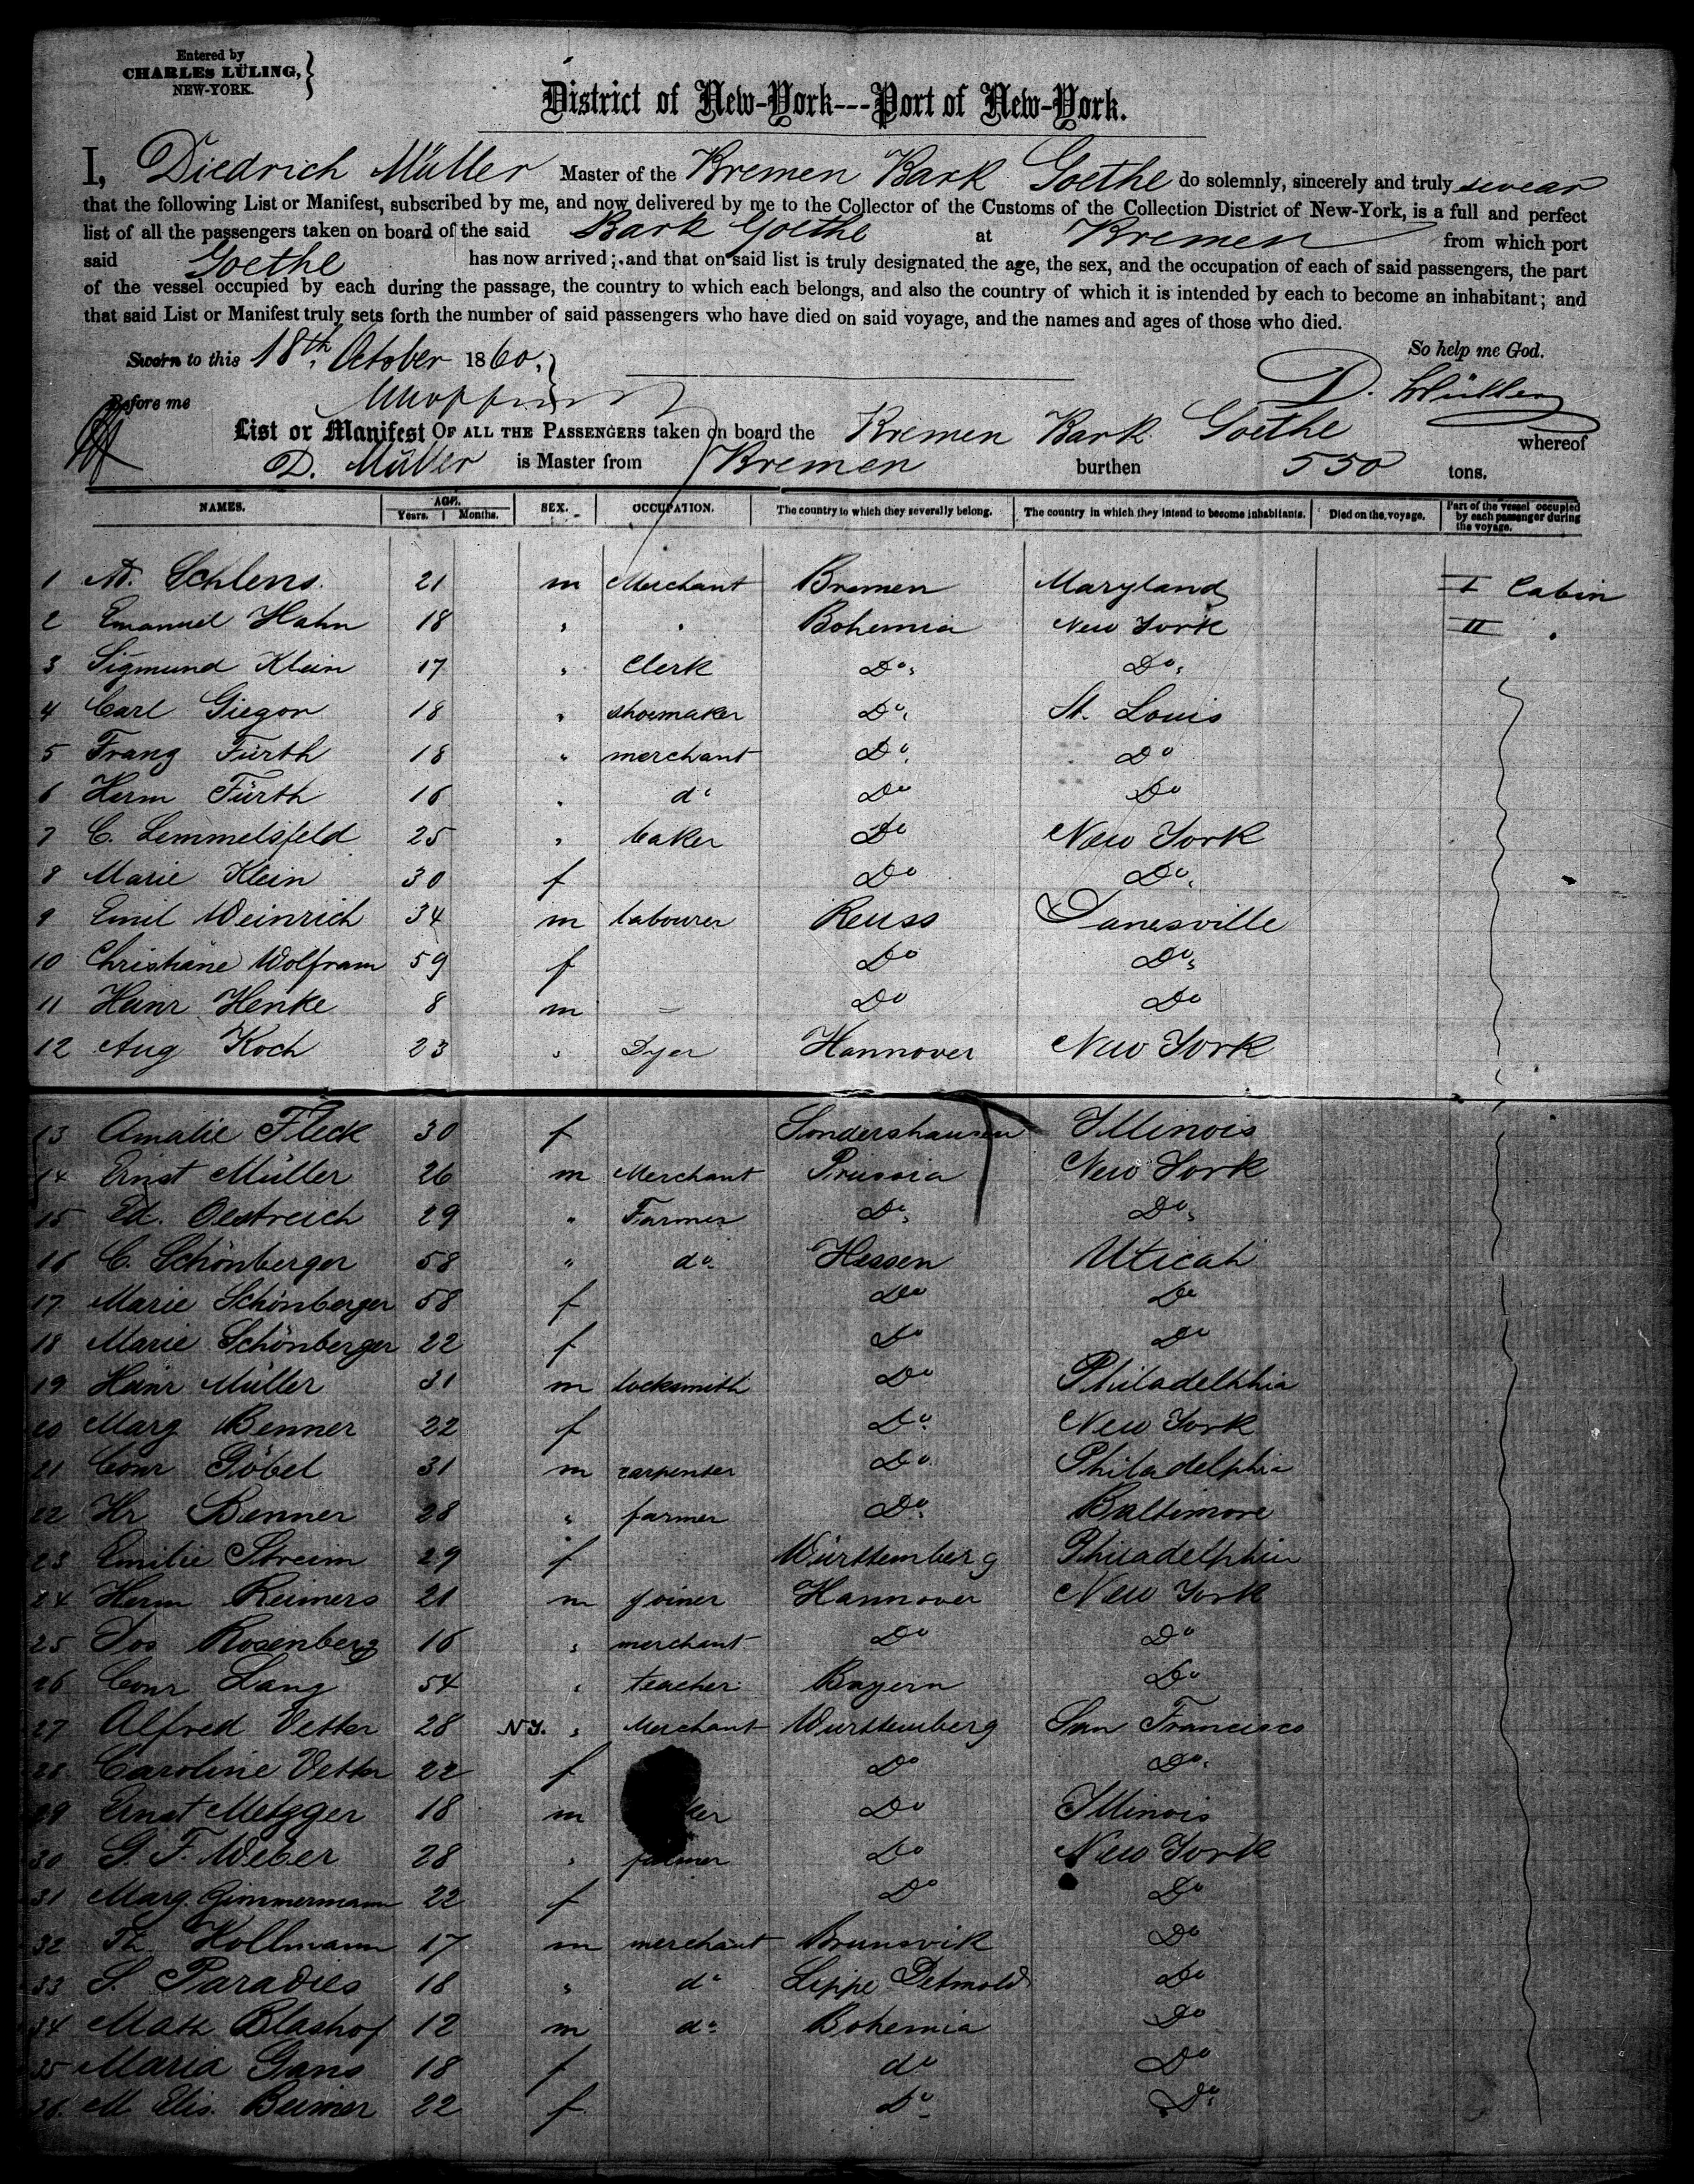 Entered by
CHARLES LÜLING,
NEW-YORK.
District of New-York---Port of New-York.
I, Diedrich Müller Master of the Bremen Bark Goethe do solemnly, sincerely and truly swear
that the following List or Manifest, subscribed by me, and now delivered by me to the Collector of the Customs of the Collection District of New-York, is a full and perfect
list of all the passengers taken on board of the said Bark Goethe at Bremen from which port
said Goethe has now arrived; and that on said list is truly designated the age, the sex, and the occupation of each of said passengers, the part
of the vessel occupied by each during the passage, the country to which each belongs, and also the country of which it is intended by each to become an inhabitant; and
that said List or Manifest truly sets forth the number of said passengers who have died on said voyage, and the names and ages of those who died.
So help me God.
Sworn to this 18th, October 1860.
D. Müller
Before me
List or Manifest OF ALL THE PASSENGERS taken on board the Bremen Bark Goethe whereof
D. Müller is Master from Bremen burthen 550 tons.
NAMES. AGE. Years. Months. SEX. OCCUPATION. The country to which they severally belong. The country in which they intend to become inhabitants. Died on the voyage. Part of the vessel occupied by each passenger during the voyage.
1 Ad. Schlens. 21 m Merchant Bremen Maryland I Cabin
2 Emanuel Hahn 18 " " Bohemia New York II "
3 Sigmund Klein 17 " Clerk Do. Do.
4 Carl Giegor 18 " shoemaker Do. St. Louis
5 Franz Fürth 18 " merchant Do. Do
6 Herm Fürth 16 " do Do Do
7 C. Lemmelsfeld 25 " baker Do New York
8 Marie Klein 30 f Do Do.
9 Emil Weinrich 34 m labourer Reuss Janesville
10 Christiane Wolfram 59 f Do Do.
11 Heinr Henke 8 m — Do Do
12 Aug Koch 23 " Dyer Hannover New York
13 Amalie Fleck 30 f Sondershausen Illinois
14 Ernst Müller 26 m Merchant Prussia New York
15 Ed. Oestreich 29 " Farmer Do. Do.
16 C. Schönberger 58 " do. Hessen Uticah
17 Marie Schönberger 58 f Do Do
18 Marie Schönberger 22 f Do Do
19 Heinr Müller 31 m locksmith Do Philadelphia
20 Marg Benner 22 f Do. New York
21 Conr Göbel 31 m carpenter Do. Philadelphia
22 Hr Benner 28 " farmer Do. Baltimore
23 Emilie Streim 29 f Württemberg Philadelphia
24 Herm Reimers 21 m joiner Hannover New York
25 Jos Rosenberg 16 " merchant Do Do
26 Conr Lang 54 " teacher Bayern Do
27 Alfred Vetter 28 N.Y. " Merchant Württemberg San Francisco
28 Caroline Vetter 22 f Do Do.
29 Ernst Metzger 18 m ker Do Illinois
30 G. F. Weber 28 " farmer Do New York
31 Marg. Zimmermann 22 f Do Do
32 Th. Hollmann 17 m merchant Brunsvik Do
33 S. Paradies 18 " do Lippe Detmold Do
34 Math Blashof 12 m do. Bohemia Do
35 Maria Gans 18 f do Do
36. M Elis. Beimer 22 f do Do.